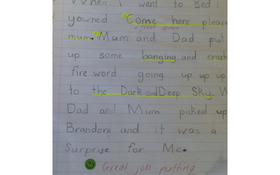 When I went to bed I
yowned "Come here pleas
mum." Mum and Dad pu
up some banging and crash
fire word going up up up
to the Dark and Deep Sky. W
Dad and Mum picked up
Brandon and it was a
Surprise for Me.
Great job putting